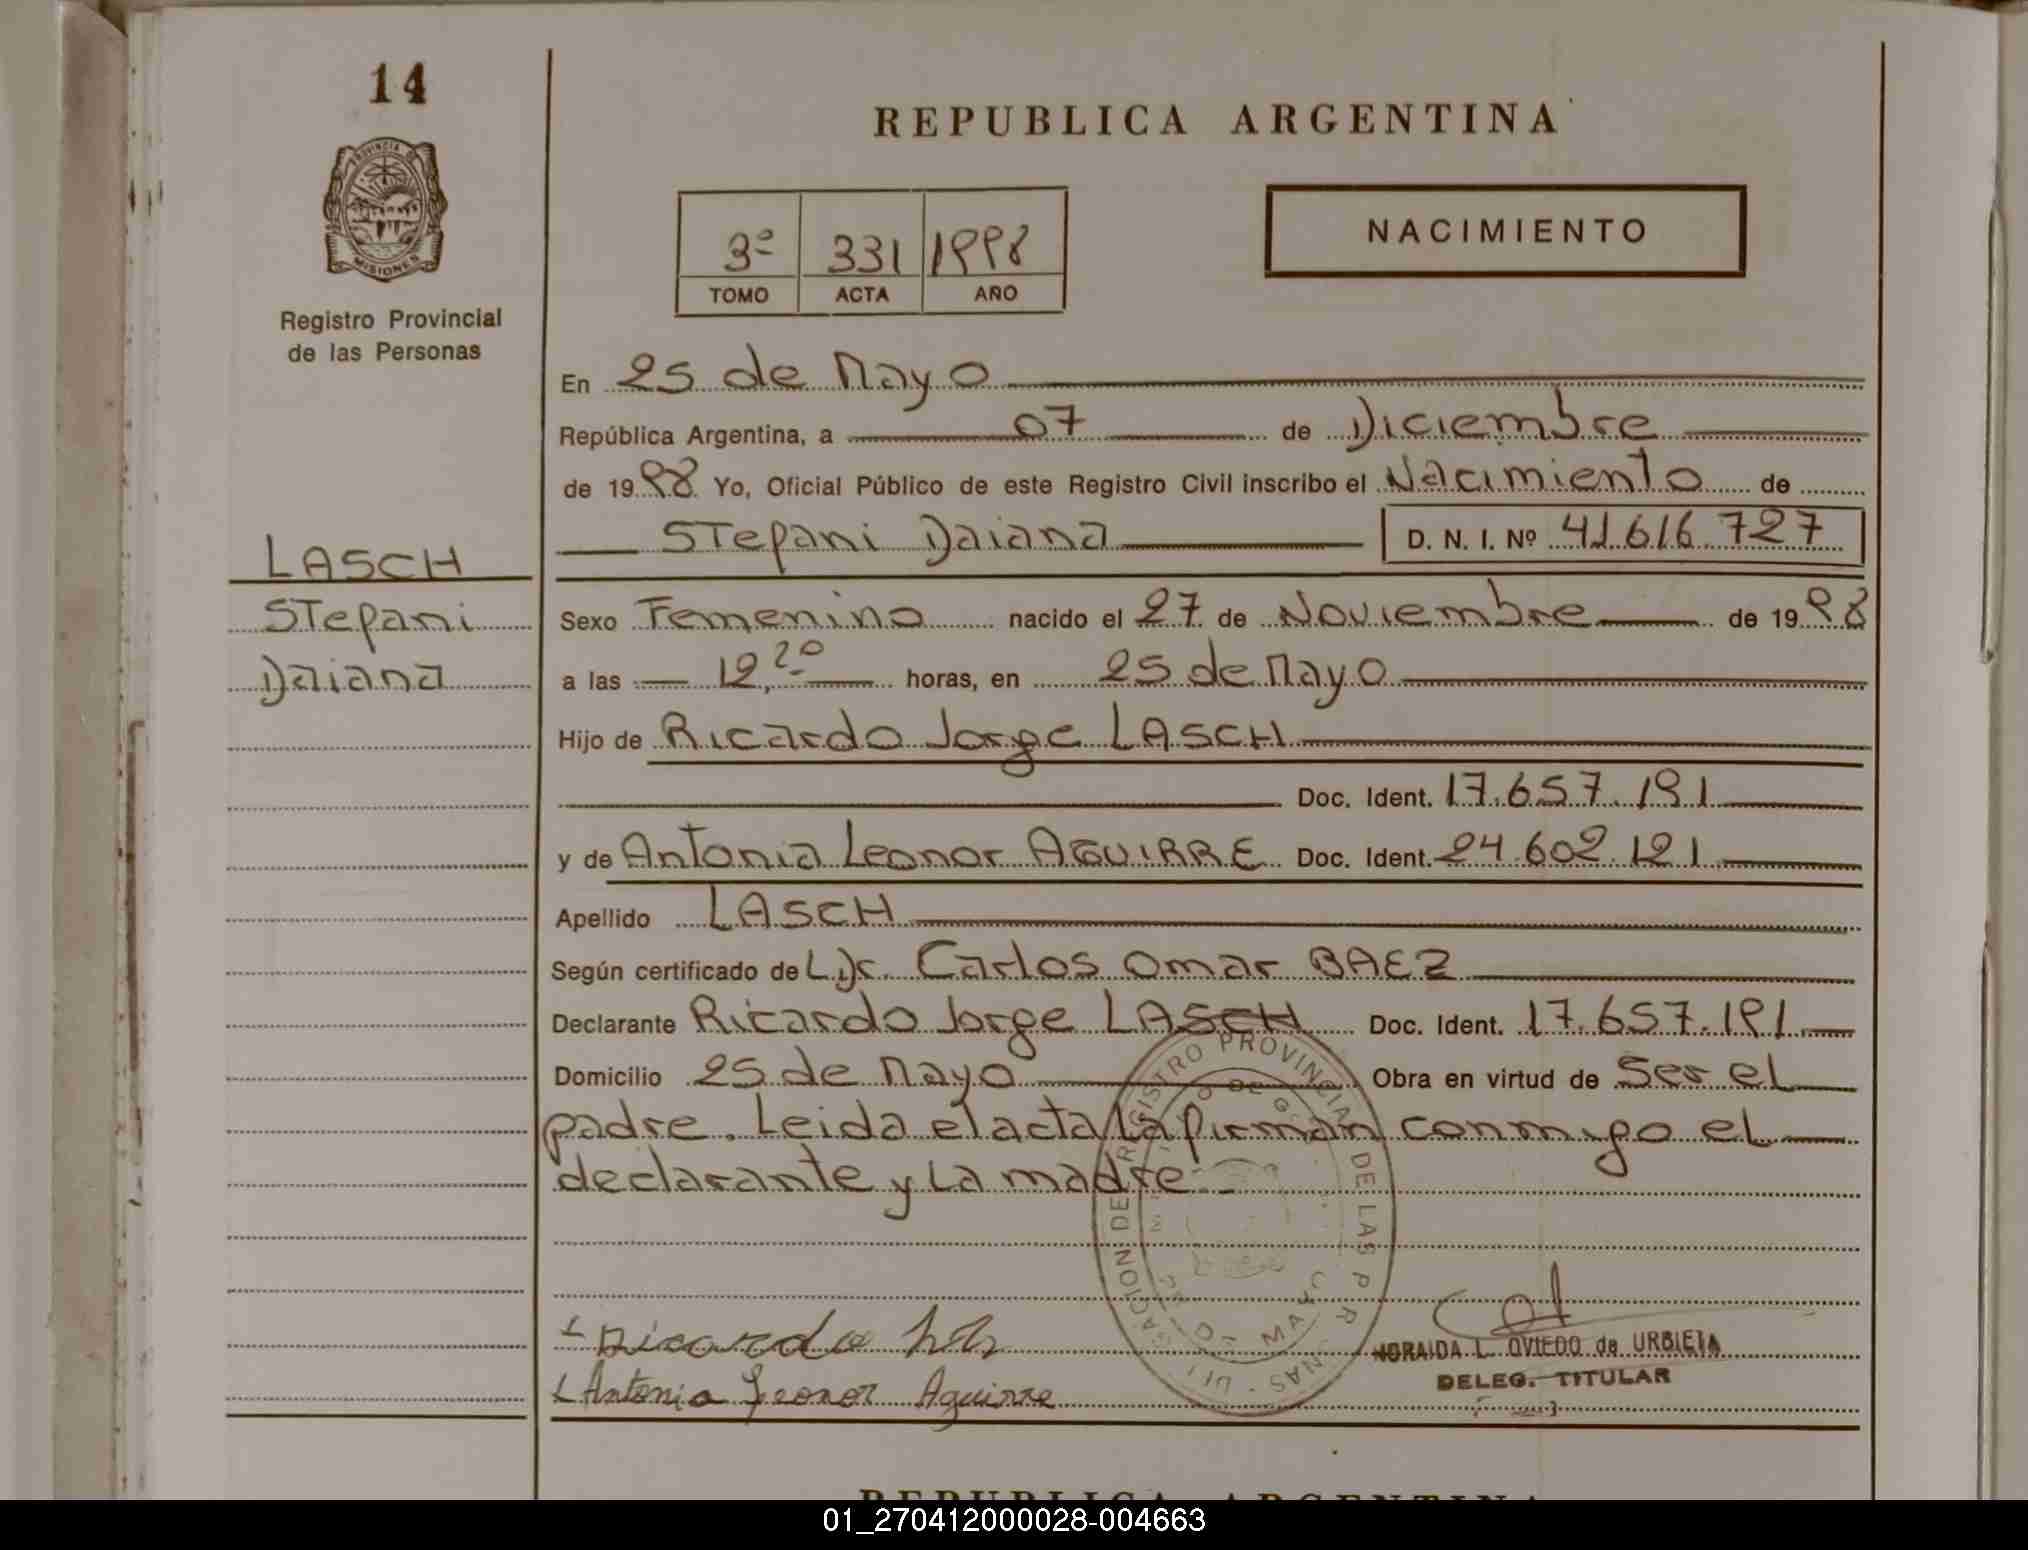 14
REPUBLICA ARGENTINA
PROVINCIA DE
MISIONES
NACIMIENTO
3º 331 1998
TOMO ACTA AÑO
Registro Provincial
de las Personas
En 25 de Mayo
República Argentina, a 07 de Diciembre
de 1998 Yo, Oficial Público de este Registro Civil inscribo el Nacimiento de
Stepani Daiana D. N. I. Nº 41.616.727
LASCH
Stepani
Daiana
Sexo Femenino nacido el 27 de Noviembre de 1998
a las 12,20 horas, en 25 de Mayo
Hijo de Ricardo Jorge LASCH
Doc. Ident. 17.657.191
y de Antonia Leonor AGUIRRE Doc. Ident. 24.602.121
Apellido LASCH
Según certificado de L Dr. Carlos Omar BAEZ
Declarante Ricardo Jorge LASCH Doc. Ident. 17.657.191
Domicilio 25 de Mayo Obra en virtud de Ser el
padre. Leida el acta la firman conmigo el
declarante y la madre
REGISTRO PROVINCIAL DE LAS
Ricardo
Antonia Leonor Aguirre
NORAIDA L. OVIEDO de URBIETA
DELEG. TITULAR
REPUBLICA ARGENTINA
01_270412000028-004663